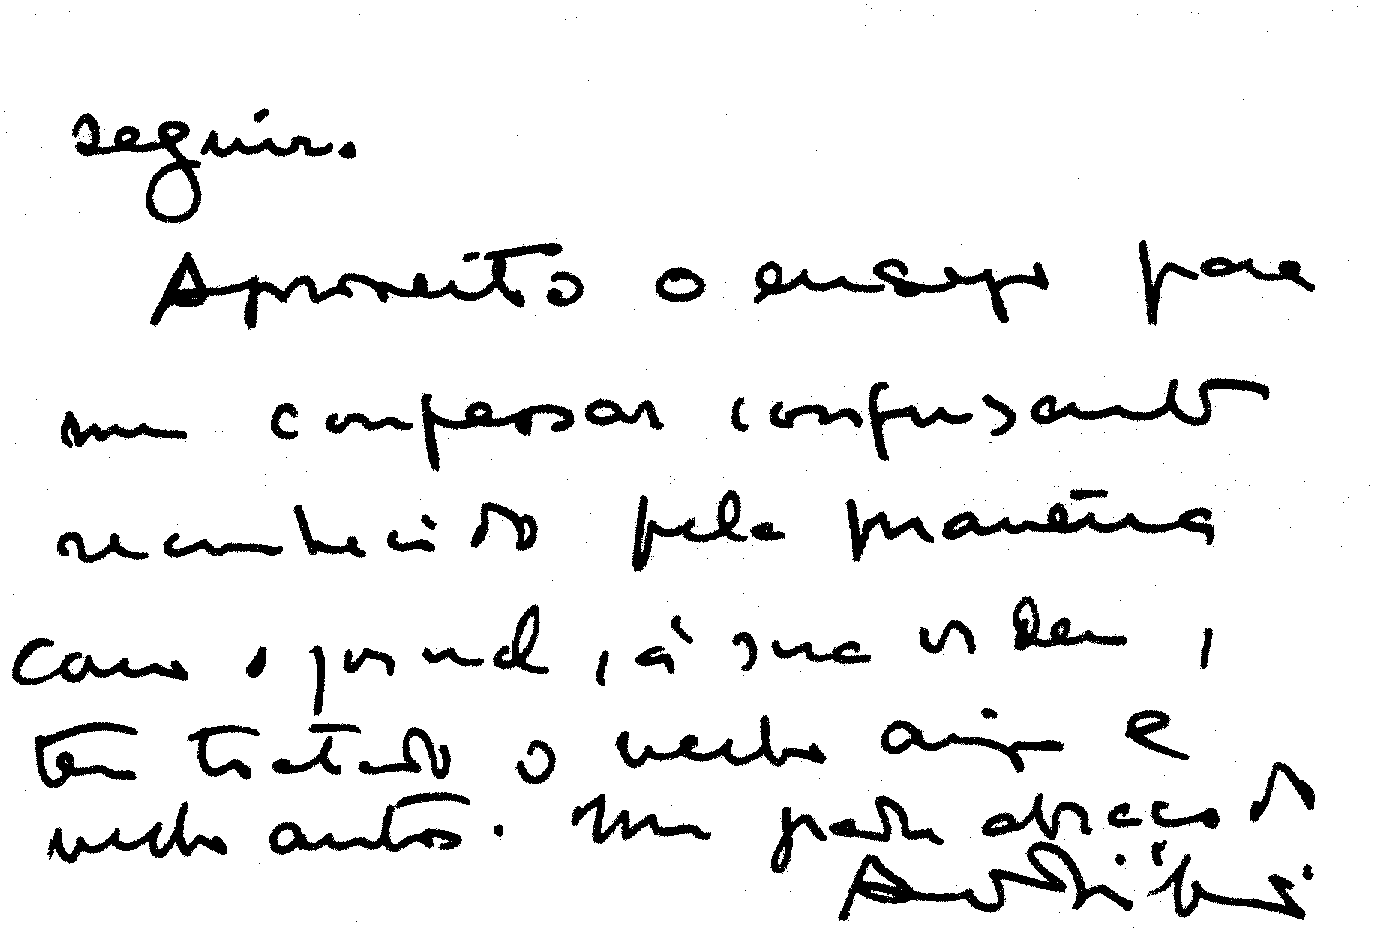 seguir.
Aproveito o ensejo para
me confessar confusamente
reconhecido pela maneira
como o jornal, à sua ordem,
tem tratado o velho amigo e
velho autor. Um grande abraço do